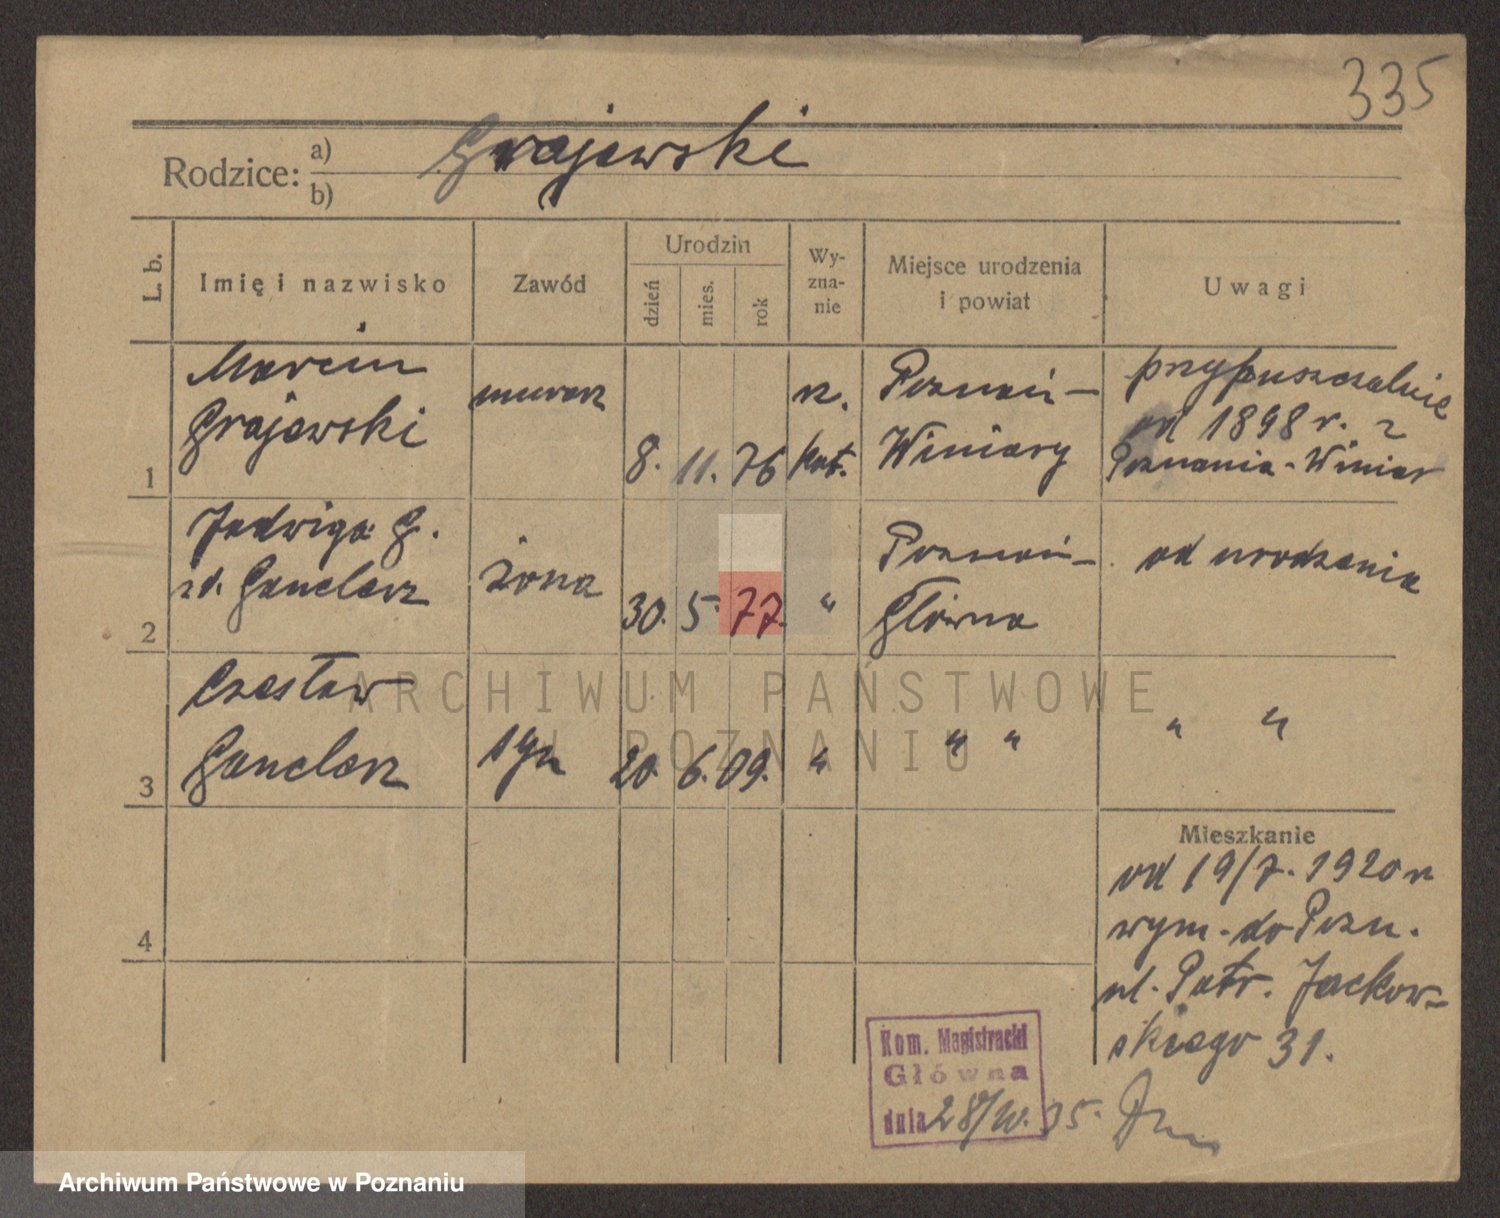 335
Grajewski
Rodzice: a)
b)
L. b.
Imię i nazwisko
Zawód
Urodzin
dzień
mies.
rok
Wy-
zna-
nie
Miejsce urodzenia
i powiat
Uwagi
1
Marcin
Grajewski
murarz
8. 11. 76
rz.
kat.
Poznań-
Winiary
przypuszczalnie
od 1898 r. z
Poznania-Winiar
2
Jadwiga G.
zd. Ganclarz
żona
30. 5. 77.
"
Poznań-
Główna
od urodzenia
3
Czesław
Ganclarz
syn
20. 6. 09.
"
" "
" "
4
Mieszkanie
od 19/7. 1920 r
wym. do Pozn.
ul. Patr. Jackow-
skiego 31.
Kom. Magistracki
Główna
dnia 28/IV. 35.
ARCHIWUM PAŃSTWOWE
W POZNANIU
Archiwum Państwowe w Poznaniu